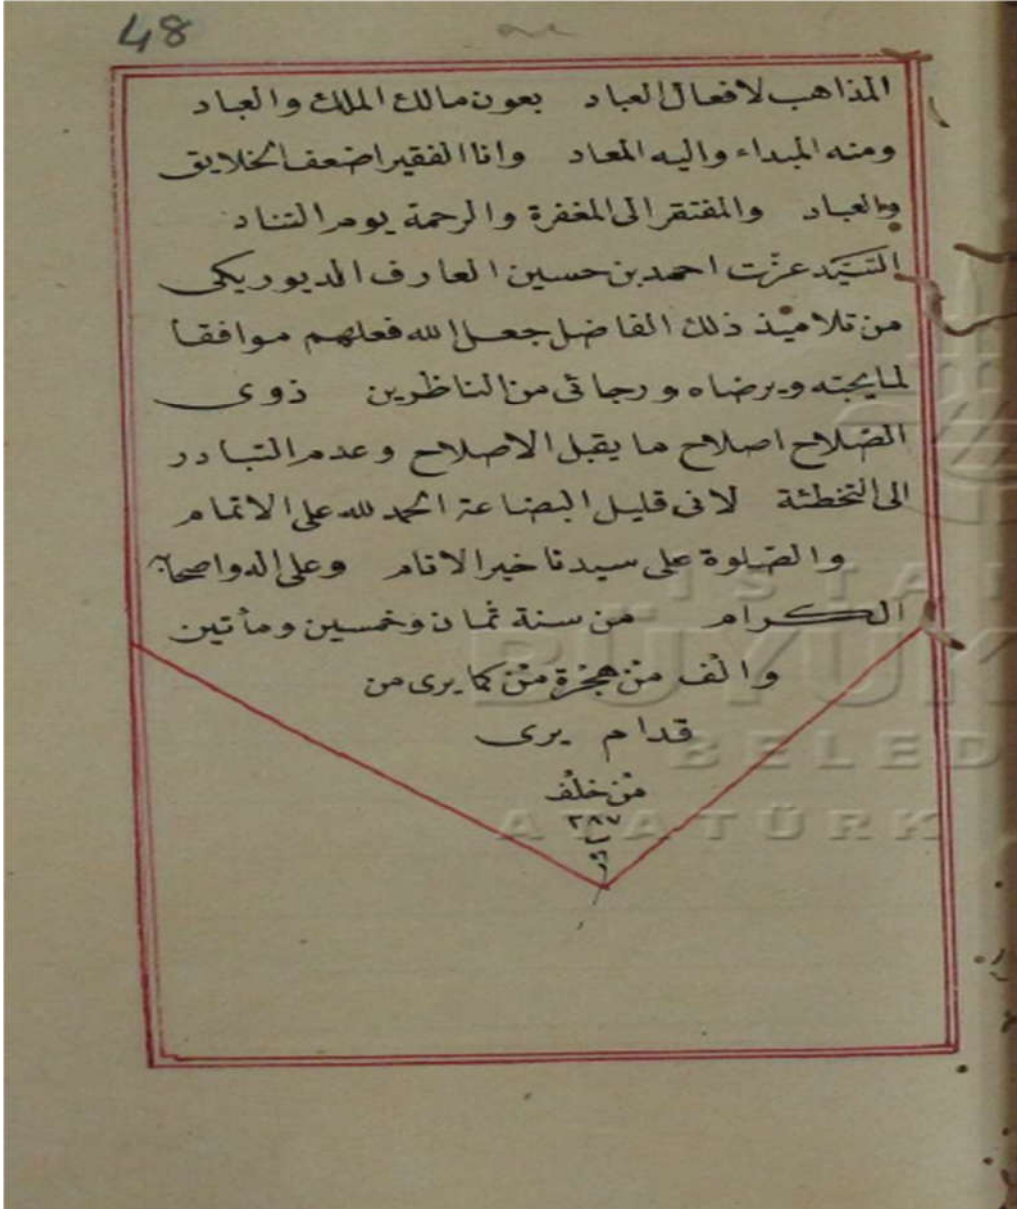 48
المذاهب لافعال العباد بعون مالك الملك والعباد
ومنه المبداء واليه المعاد وانا الفقير اضعف الخلايق
والعباد والمفتقر الى المغفرة والرحمة يوم التناد
السيد عزت احمد بن حسين العارف الديوريكى
من تلاميذ ذلك الفاضل جعل الله فعلهم موافقا
لما يحبه ويرضاه ورجائى من الناظرين ذوى
الصلاح اصلاح ما يقبل الاصلاح وعدم التبادر
الى التخطئة لانى قليل البضاعة الحمد لله على الاتمام
والصلوة على سيدنا خير الانام وعلى اله واصحابه
الكرام من سنة ثمان وخمسين ومأتين
والف من هجرة من كما يرى من
قدام يرى
من خلف
٢٨٧
ISTA
BÜYÜK
BELED
ATATÜRK